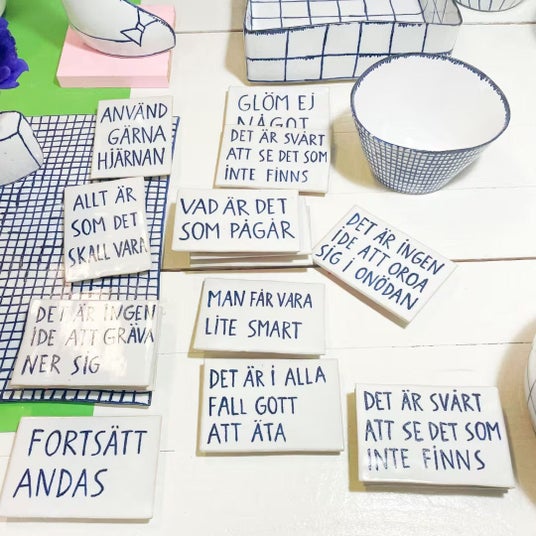 ANVÄND
GÄRNA
HJÄRNAN
GLÖM EJ
NÅGOT
DET ÄR SVÅRT
ATT SE DET SOM
INTE FINNS
ALLT ÄR
SOM DET
SKALL VARA
VAD ÄR DET
SOM PÅGÅR
DET ÄR INGEN
IDE ATT OROA
SIG I ONÖDAN
DET ÄR INGEN
IDE ATT GRÄVA
NER SIG
MAN FÅR VARA
LITE SMART
DET ÄR I ALLA
FALL GOTT
ATT ÄTA
DET ÄR SVÅRT
ATT SE DET SOM
INTE FINNS
FORTSÄTT
ANDAS